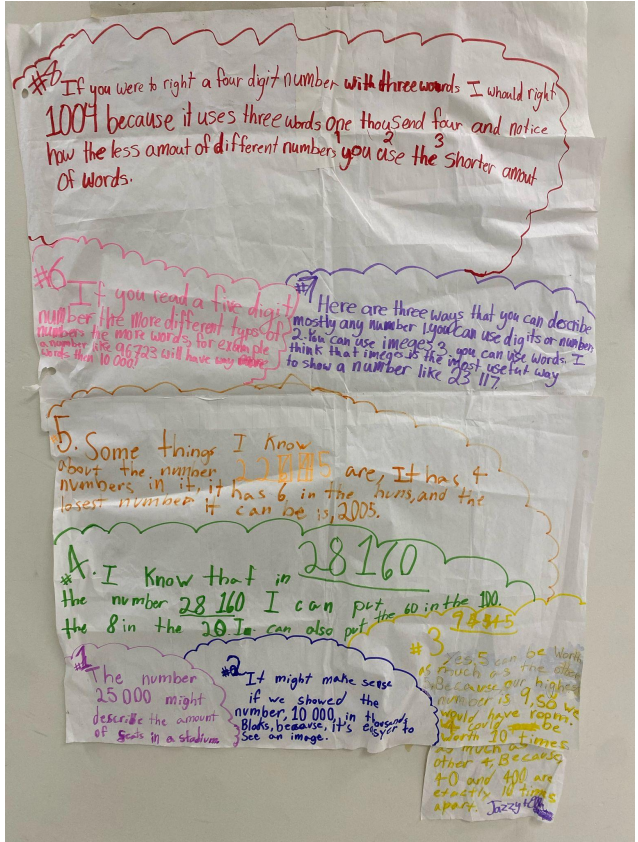 #8 If you were to right a four digit number with three words I whould right
1004 because it uses three words one thousend four and notice
1 2 3
how the less amout of different numbers you use the shorter amout
of words.
#6 If you read a five digit
number the more different typs of
numbers the more words, for example
a number like 96723 will have way more
words then 10 000!
#7 Here are three ways that you can describe
mostly any number 1. you can use digits or number,
2. You can use imeges 3. you can use words. I
think that imeges is the most usefut way
to show a number like 23 117.
5. Some things I know
about the number are, It has 4
numbers in it, it has 6 in the huns, and the
losest number it can be is, 2005.
#4. I know that in 28160
the number 28 160 I can put the 60 in the 100.
the 8 in the 20 I can also put
#1
The number
25 000 might
describe the amount
of seats in a stadium
#2 It might make sense
if we showed the
number, 10 000, in th thousands
Bloks, because, it's eassyer to
See an image.
#3
Yes, 5 can be worth
as much as the other
Because our highest
number is 9, so we
would have room.
4 could be
worth 10 times
as much as
other 4, Because
40 and 400 are
exactly 10 times
apart. Jazzy